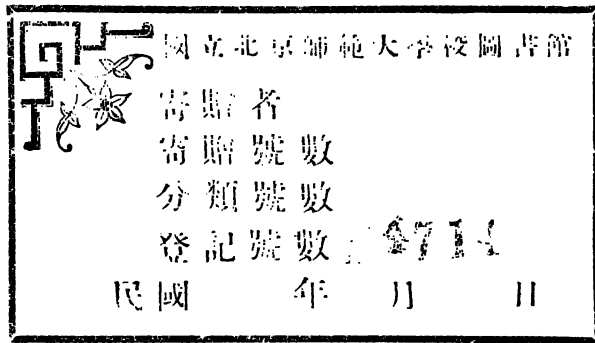 國立北京師範大學校圖書館
寄贈者
寄贈號數
分類號數
登記號數
民國 年 月 日